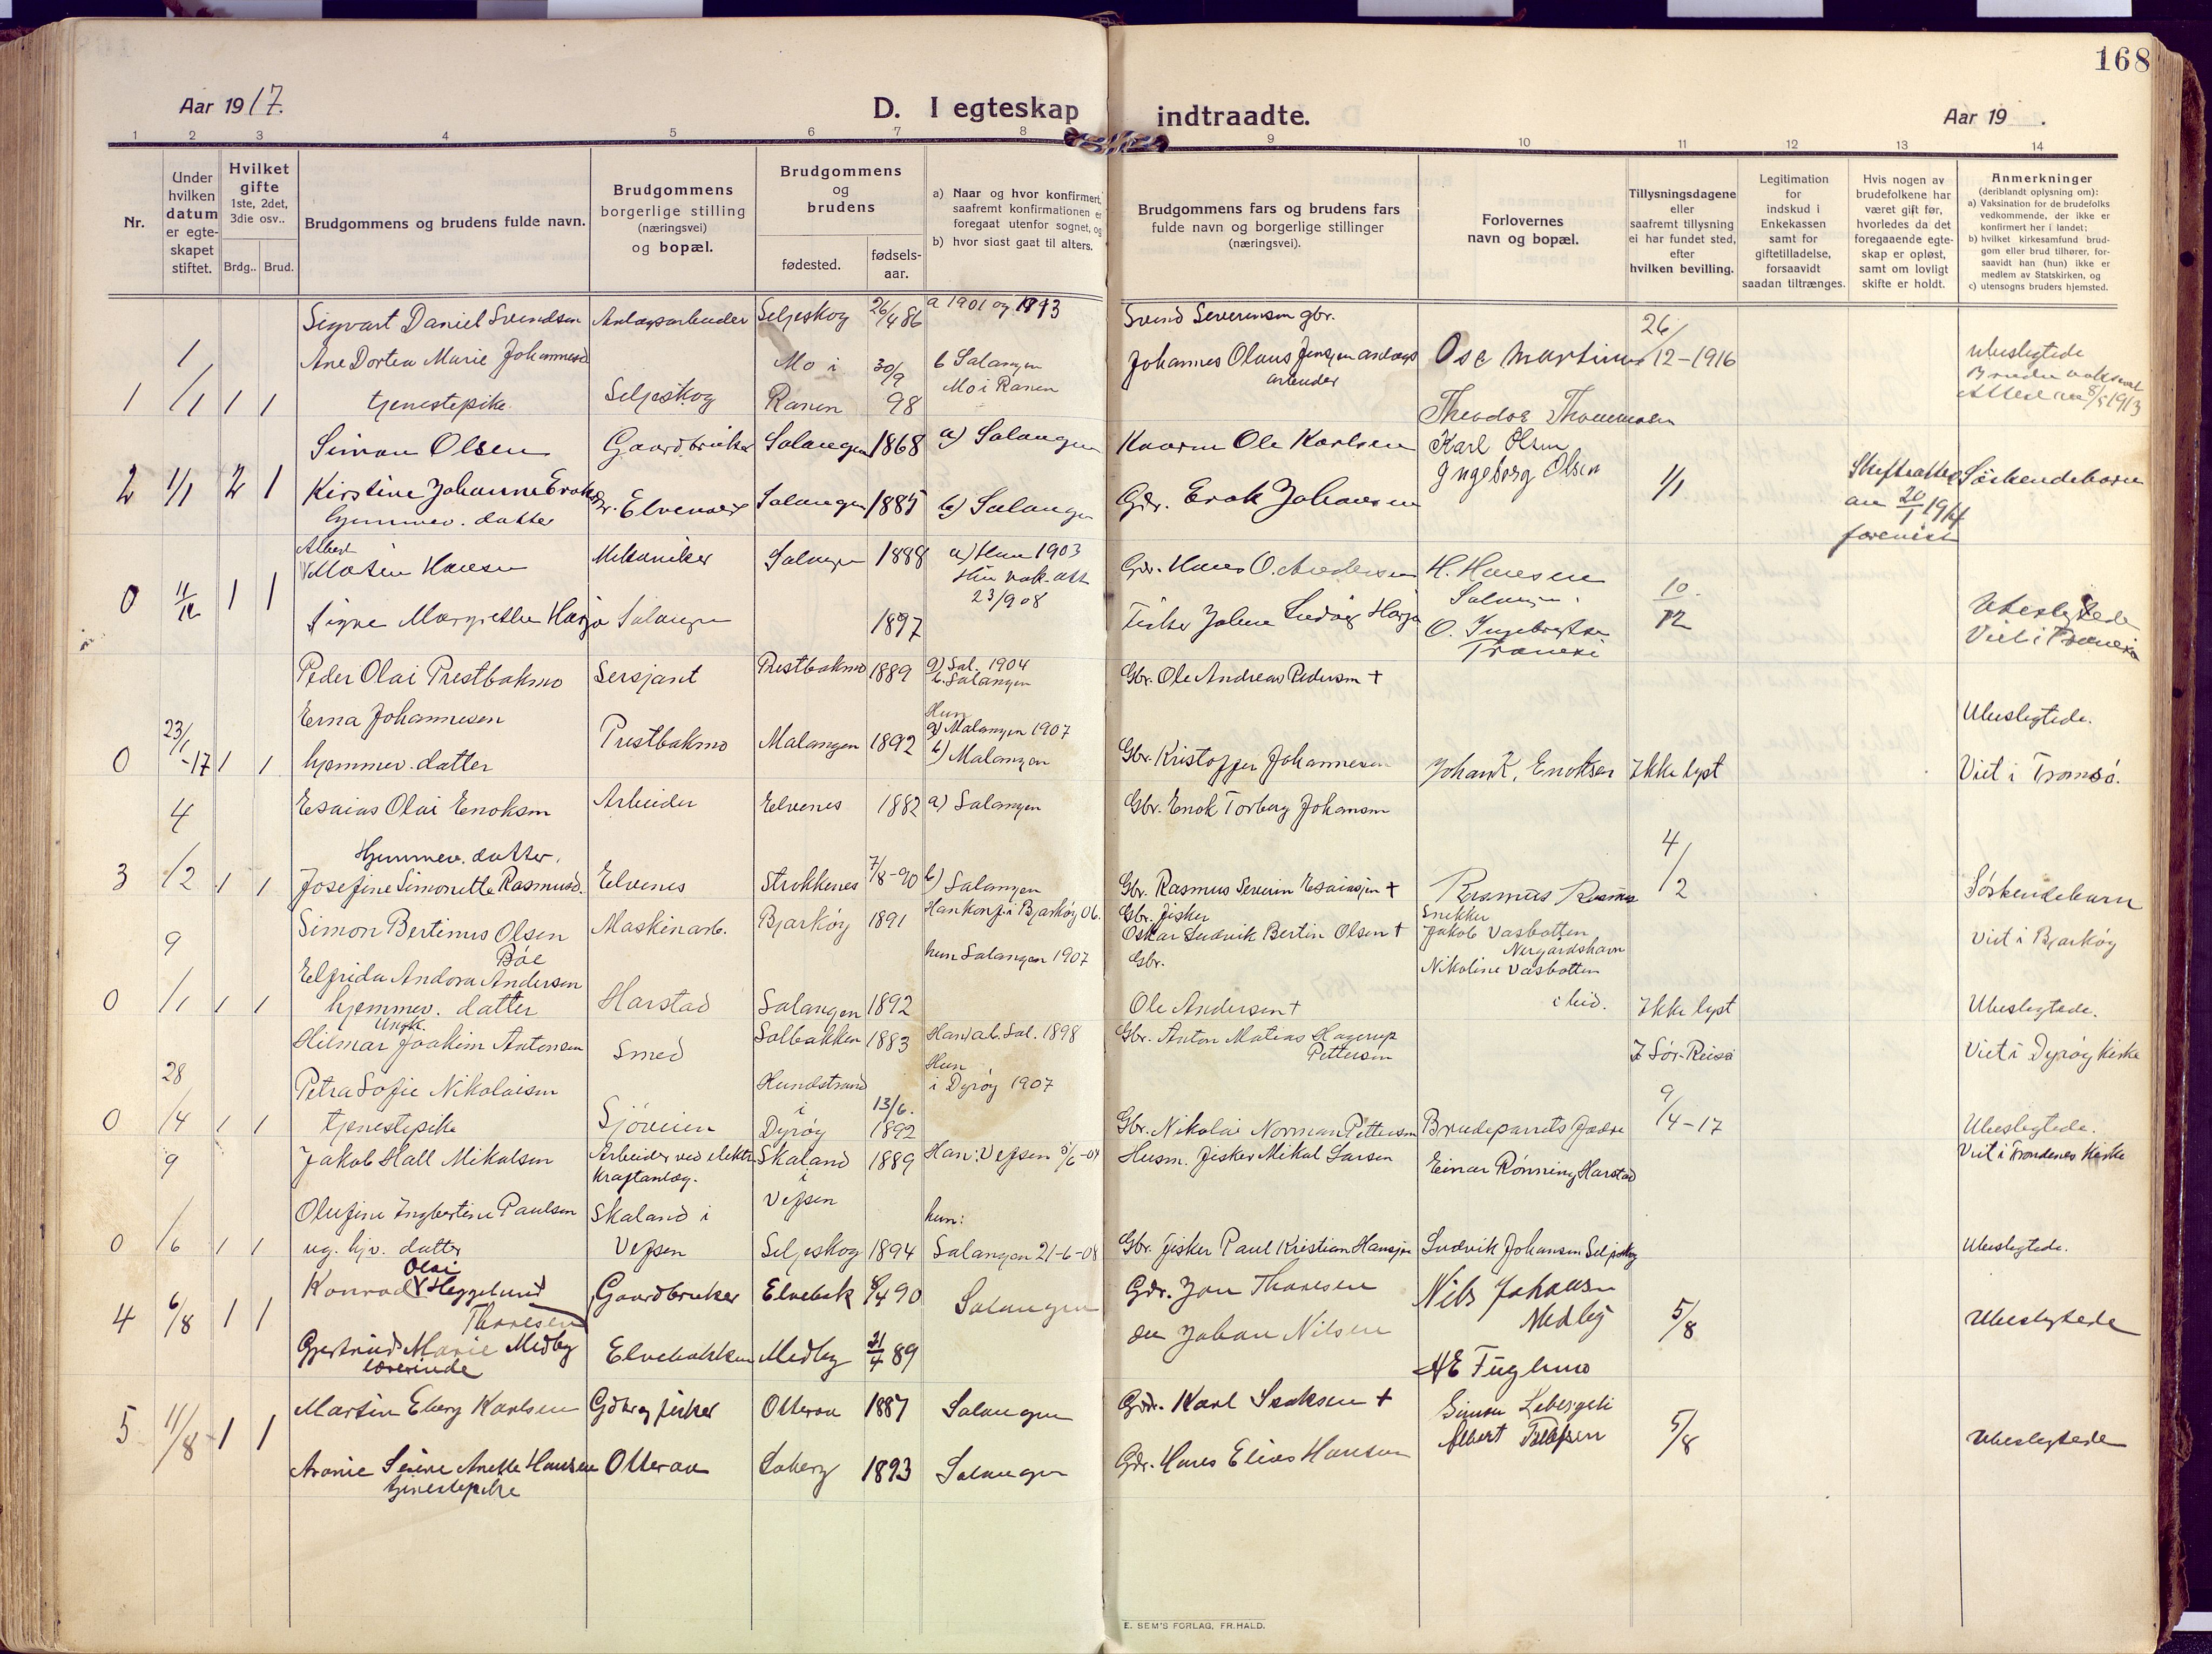 168
Aar 1917.
D. I egteskap indtraadte.
Aar 19 .
1 2 3 4 5 6 7 8 9 10 11 12 13 14
Nr.
Under hvilken datum er egte-skapet stiftet.
Hvilket gifte 1ste, 2det, 3die osv..
Brdg.. Brud.
Brudgommens og brudens fulde navn.
Brudgommens borgerlige stilling (næringsvei) og bopæl.
Brudgommens og brudens
fødested. fødsels-aar.
a) Naar og hvor konfirmert, saafremt konfirmationen er foregaat utenfor sognet, og
b) hvor sidst gaat til alters.
Brudgommens fars og brudens fars fulde navn og borgerlige stillinger (næringsvei).
Forlovernes navn og bopæl.
Tillysningsdagene eller saafremt tillysning ei har fundet sted, efter hvilken bevilling.
Legitimation for indskud i Enkekassen samt for giftetilladelse, forsaavidt saadan tiltrænges.
Hvis nogen av brudefolkene har været gift før, hvorledes da det foregaaende egte-skap er opløst, samt om lovligt skifte er holdt.
Anmerkninger
(deriblandt oplysning om):
a) Vaksination for de brudefolks vedkommende, der ikke er konfirmert her i landet;
b) hvilket kirkesamfund brud-gom eller brud tilhører, for-saavidt han (hun) ikke er medlem av Statskirken, og
c) utensogns bruders hjemsted.
Sigvart Daniel Svendsen Anlægsarbeider Seljeskog 26/4 86 Svend Severinsen gbr.
1 1/1 1 1 Ane Dortea Marie Johannesd Mo i 30/9 b Salangen Johannes Olaus Jensen anlægs 26/12-1916 Ubeslegtede
tjenestepike Seljeskog Ranen 98 Mo i Ranen arbeider
Simon Olsen Gaardbruker Salangen 1868 a) Salangen Kaarm Ole Karlsen Karl Olsen
2 1/1 2 1 Kirstine Johanne Gbr. Elvenes Salangen 1885 b) Salangen Gbr. Enok Johansen Ingeborg Olsen 1/1 Søskendebarn
hjemmev. datter
Albert
Martin Hansen Mekaniker Salangen 1888 a) Han 1903 Gbr. Hans O. Andersen H. Hansen
0 11/12 1 1 Hun vak. att 23/9 08 Salangen 10/12 Ubeslegtede
Signe Margrethe Salangen 1897 Fisker Johan Ludvig O. Ingebrigtsen Viet i Tranøy
Peder Olai Prestbakmo Sersjant Prestbakmo 1889 a) Sal. 1904 Gbr. Ole Andreas Pedersen +
b. Salangen
Erna Johannesen Hun Ubeslegtede.
0 23/1-17 1 1 Prestbakmo Malangen 1892 a) Malangen 1907
hjemmev. datter b) Malangen Gbr. Kristoffer Johannesen Johan K. Enoksen Ikke lyst Viet i Tromsø.
Esaias Olai Enoksen Arbeider Elvenes 1882 a) Salangen Gbr. Enok Torberg Johansen
Hjemmev. datter.
3 4/2 1 1 Josefine Simonette Rasmusd. Elvenes Strokkenes 7/8-90 b) Salangen Gbr. Rasmus Severin Esaiassen + Rasmus 4/2 Søskendebarn
Simon Bertinus Olsen Maskinarb. Bjarkøy 1891 Han konf. i Bjarkøy 06. Gbr. fisker Snekker
Bøe Oskar Ludvik Bertin Olsen + Jakob Vasbotten Viet i Bjarkøy
Elfrida Andora Andersen hun Salangen 1907 Gbr. Nergårdshavn
Nikoline Vasbotten
0 9/1 1 1 hjemmev. datter Harstad Salangen 1892 Ole Andersen + ibid. Ikke lyst Ubeslegtede.
Ungk.
Hilmar Joakim Antonsen Smed Solbakken 1883 Han ab. Sal. 1898 Gbr. Anton Mateas Hagerup Pettersen I Sør-Reisa Viet i Dyrøy kirke
Petra Sofie Nikolaisen Hundstrand Hun i Dyrøy 1907
0 28/4 1 1 tjenestepike Sjøveien i Dyrøy 13/6. 1892 Gbr. Nikolai Norman Pettersen Brudeparrets fædre 9/4-17 Ubeslegtede.
Jakob Hall Mikalsen Arbeider ved elektr. kraftanlæg. Skaland i Vefsen 1889 Han: Vefsen 5/6-04 Husm. fisker Mikal Larsen Einar Rønning Harstad Viet i Trondenes kirke
Olufine Ingbertine Paulsen Skaland i hun:
0 9/6 1 1 ug. hjv. datter Vefsen Seljeskog 1894 Salangen 21-6-08 Gbr. fisker Paul Kristian Hansen Ludvik Johansen Seljeskog Ubeslegtede.
Olai
Konrad Heggelund Gaardbruker Elvebak 90 Salangen Gbr. Jon Thoresen Nils Johansen
4 6/8 1 1 Thoresen Medby 5/8 Ubeslegtede
Gjertrud Marie Medby Elvebakken Medby 21/4 89 Johan Nilsen
lærerinde Fuglemo
Martin Eberg Karlsen Gdbr og fisker Otteraa 1887 Salangen Gbr. Karl Isaksen + Simon
5 11/8 1 1 Albert 5/8 Ubeslegtede
Anette Hansen Otteraa Laberg 1893 Salangen Gbr. Hans Elias Hansen
tjenestepike
E. SEM'S FORLAG, FR.HALD.